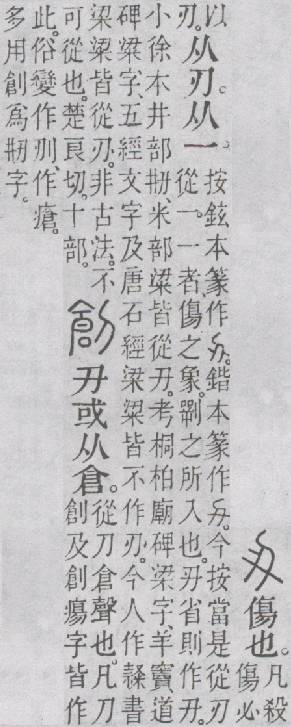 傷也。凡殺
傷必
以
刃。
从刃。从一。
按鉉本篆作。鍇本篆作。今按當是從刃
從一。一者、傷之象。之所入也。𠚣省則作𠚣。
小徐本井部刱、米部粱皆從𠚣。考桐柏廟碑梁字、羊竇道
碑梁字、五經文字及唐石經梁粱皆不作刅。今人作隸書
梁粱皆從刅。非古法。不
可從也。楚良切。十部。
創
𠚣或从倉。
從刀倉聲也。凡刀
創及創瘍字皆作
此。俗變作刱作瘡。
多用創爲刱字。